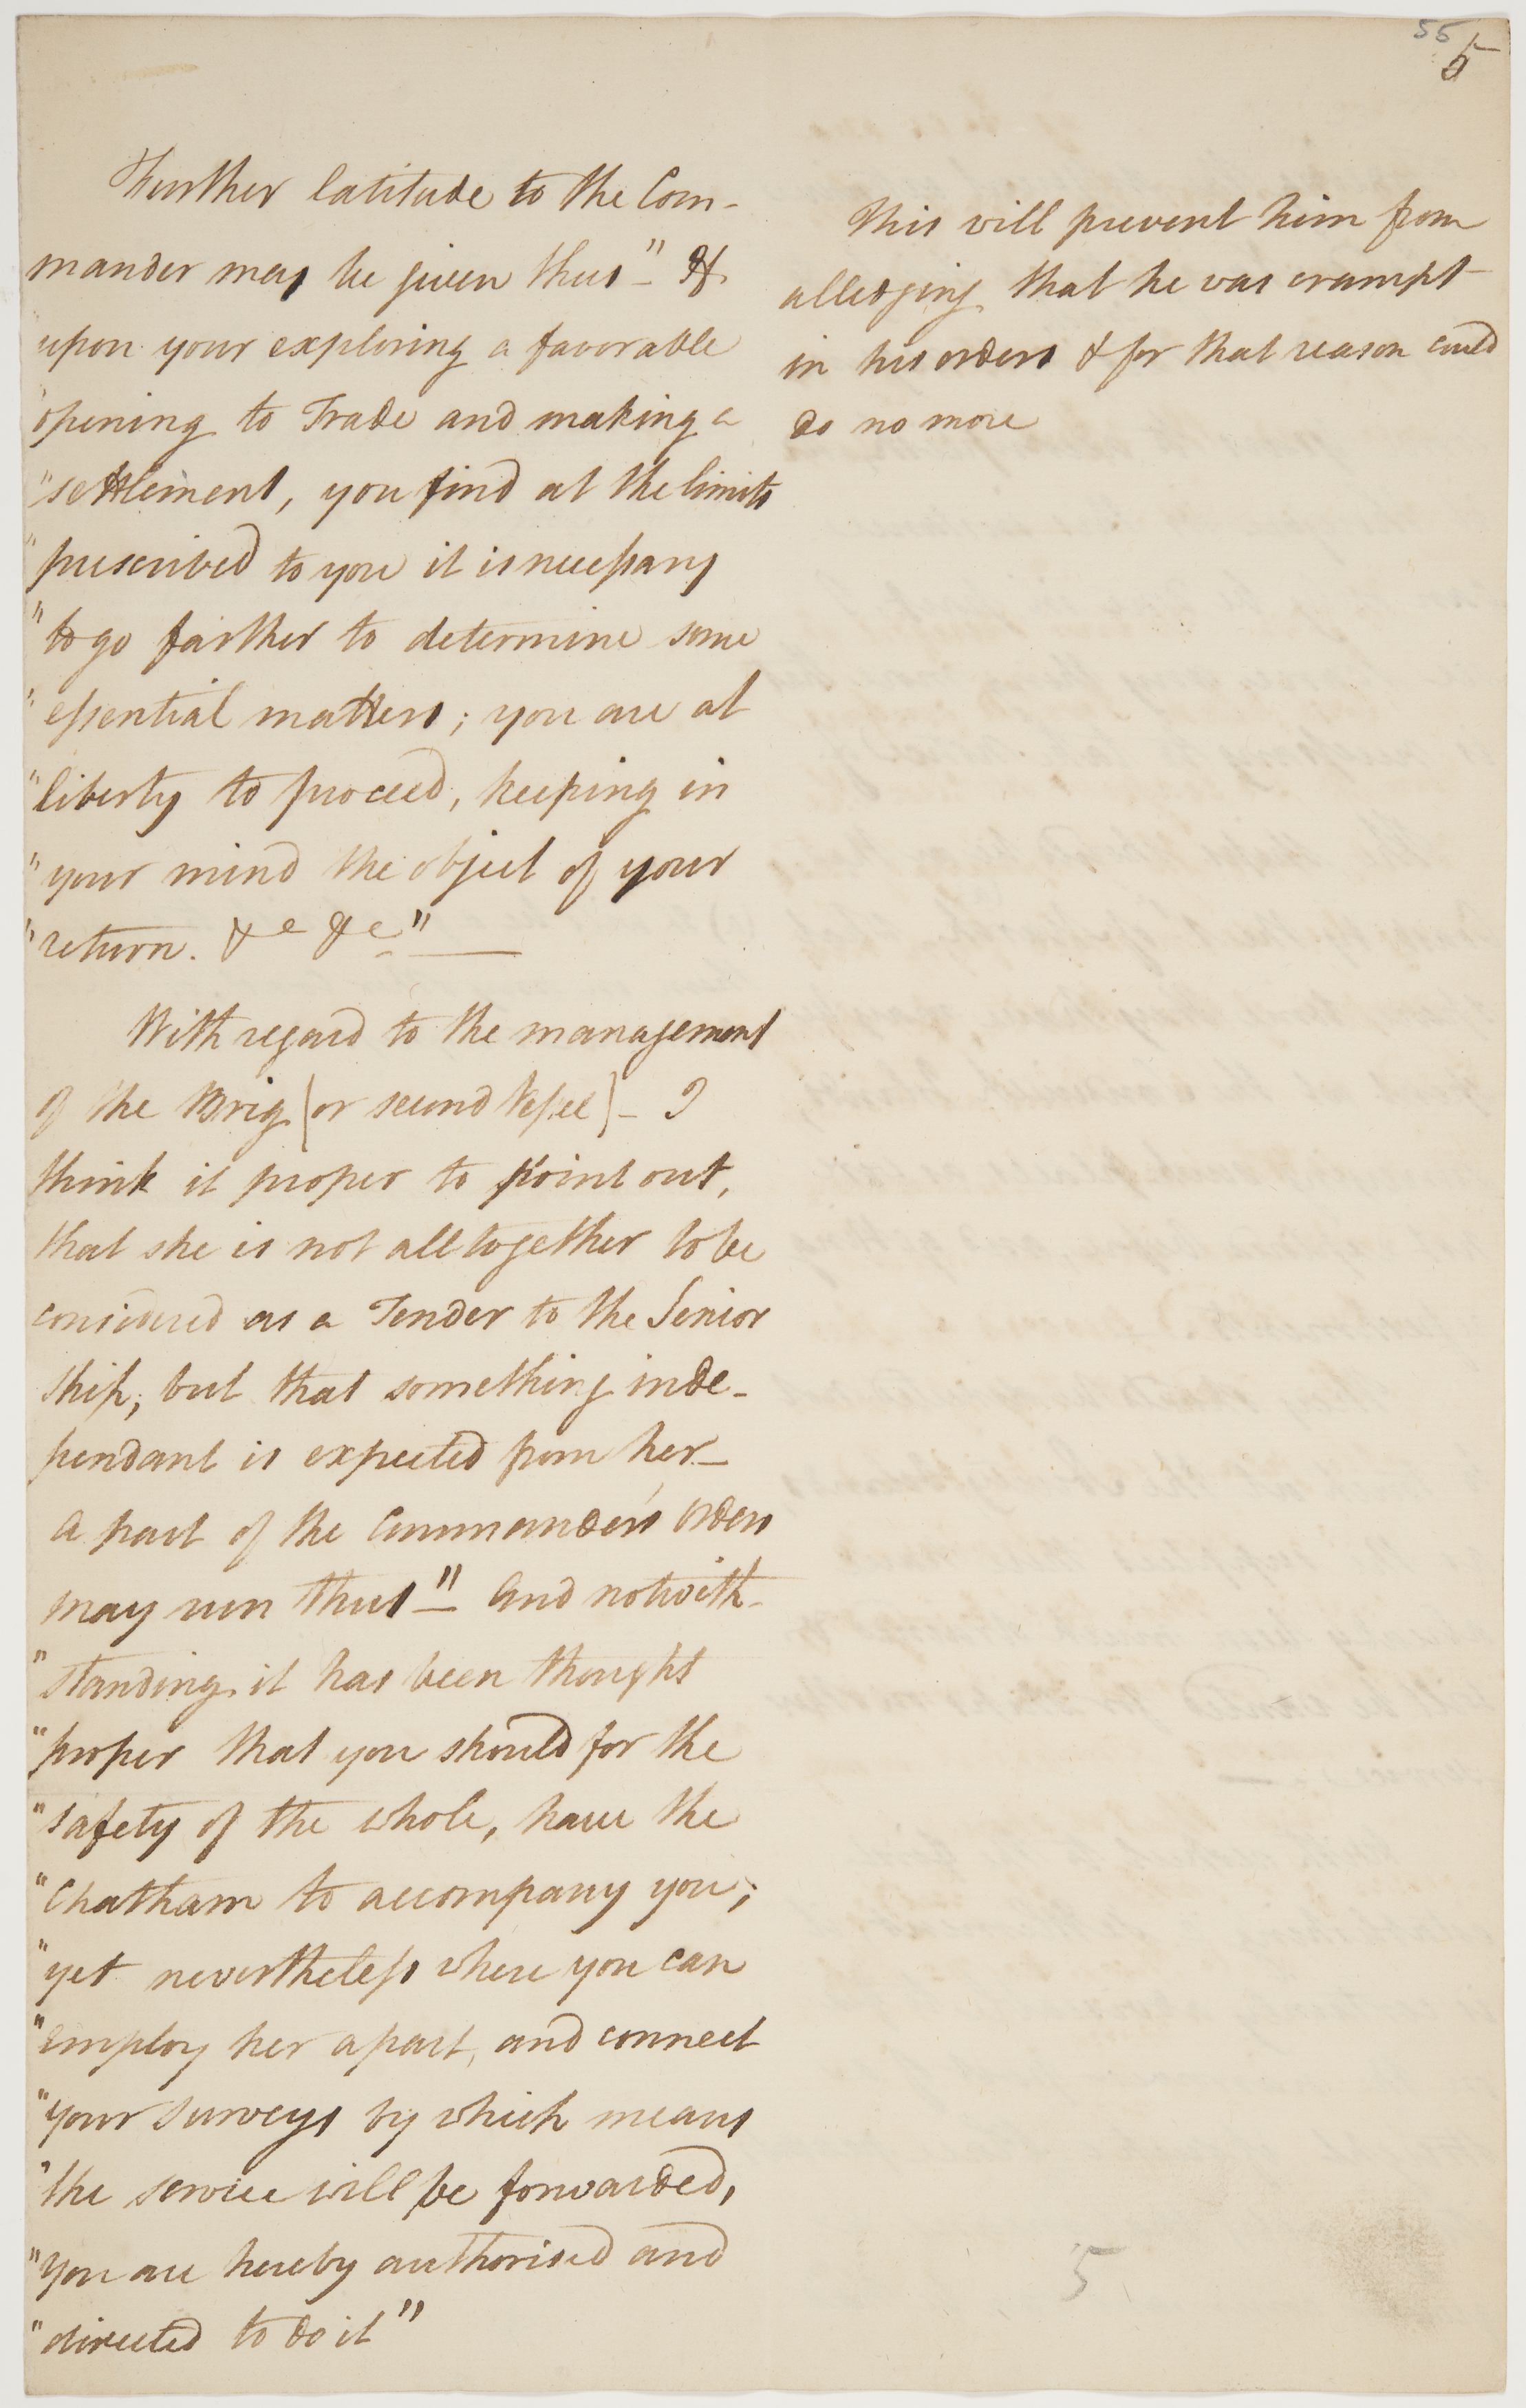 55
5
Further latitude to the Com-
mander may be given thus "- If
upon your exploring a favorable
"opening to Trade and making a
"settlement, you find at the limits
"prescribed to you it is necessary
"to go farther to determine some
"essential matters; you are at
"liberty to proceed, keeping in
"your mind the object of your
"return. &c &c" —
With regard to the management
of the Brig (or second Vessel) - I
think it proper to point out,
that she is not alltogether to be
considered as a Tender to the Senior
ship; but that something inde-
pendant is expected from her -
a part of the Commander's orders
may run thus "- and notwith-
"standing it has been thought
"proper that you should for the
"safety of the whole, have the
"Chatham to accompany you;
"yet nevertheless where you can
"employ her apart, and connect
"your surveys by which means
"the service will be forwarded,
"you are hereby authorised and
"directed to do it"
This will prevent him from
alledging that he was crampt
in his orders & for that reason could
do no more
5